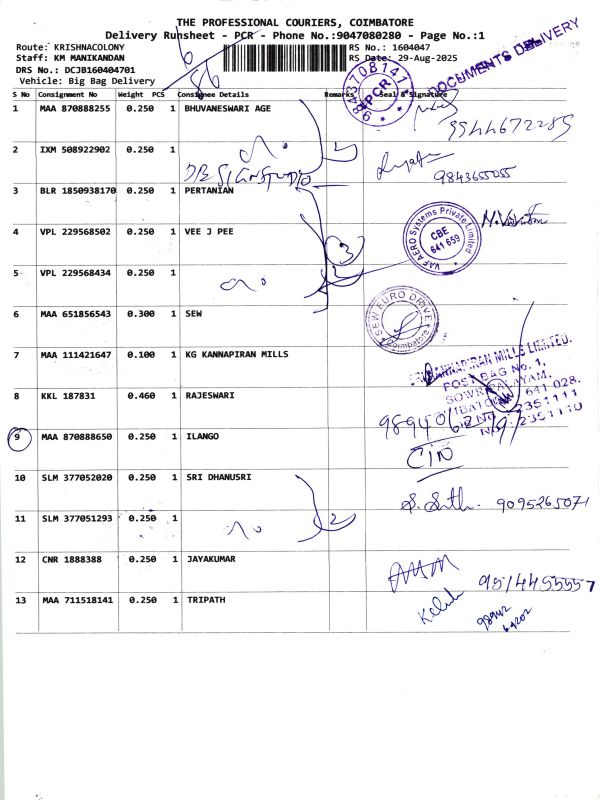 THE PROFESSIONAL COURIERS, COIMBATORE
Delivery Runsheet - PCR - Phone No.:9047080280 - Page No.:1
Route: KRISHNACOLONY RS No.: 1604047
Staff: KM MANIKANDAN RS Date: 29-Aug-2025
DRS No.: DCJB160404701
Vehicle: Big Bag Delivery
DOCUMENTS DELIVERY
9843708147
PCR
S No Consignment No Weight PCS Consignee Details Remarks Seal & Signature
1 MAA 870888255 0.250 1 BHUVANESWARI AGE
9944672285
2 IXM 508922902 0.250 1
DB SIGN STUDIO 9843655055
3 BLR 1850938170 0.250 1 PERTANIAN
VAF AERO Systems Private Limited
CBE
641 659
4 VPL 229568502 0.250 1 VEE J PEE
3
5 VPL 229568434 0.250 1
6 MAA 651856543 0.300 1 SEW
SEW EURO DRIVE
Coimbatore
7 MAA 111421647 0.100 1 KG KANNAPIRAN MILLS
KANNAPIRAN MILLS LIMITED.
POST BAG No. 1,
SOWRIPALAYAM,
641 028.
2351111
2351110
8 KKL 187831 0.460 1 RAJESWARI
9 MAA 870888650 0.250 1 ILANGO
CIN
10 SLM 377052020 0.250 1 SRI DHANUSRI
9095265071
11 SLM 377051293 0.250 1
2
12 CNR 1888388 0.250 1 JAYAKUMAR
9514455557
13 MAA 711518141 0.250 1 TRIPATH
98942
69202